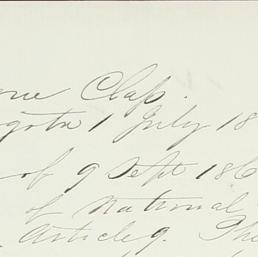 Clap.
1 July 18
of 9 Sept 186
of National
Article 9. The